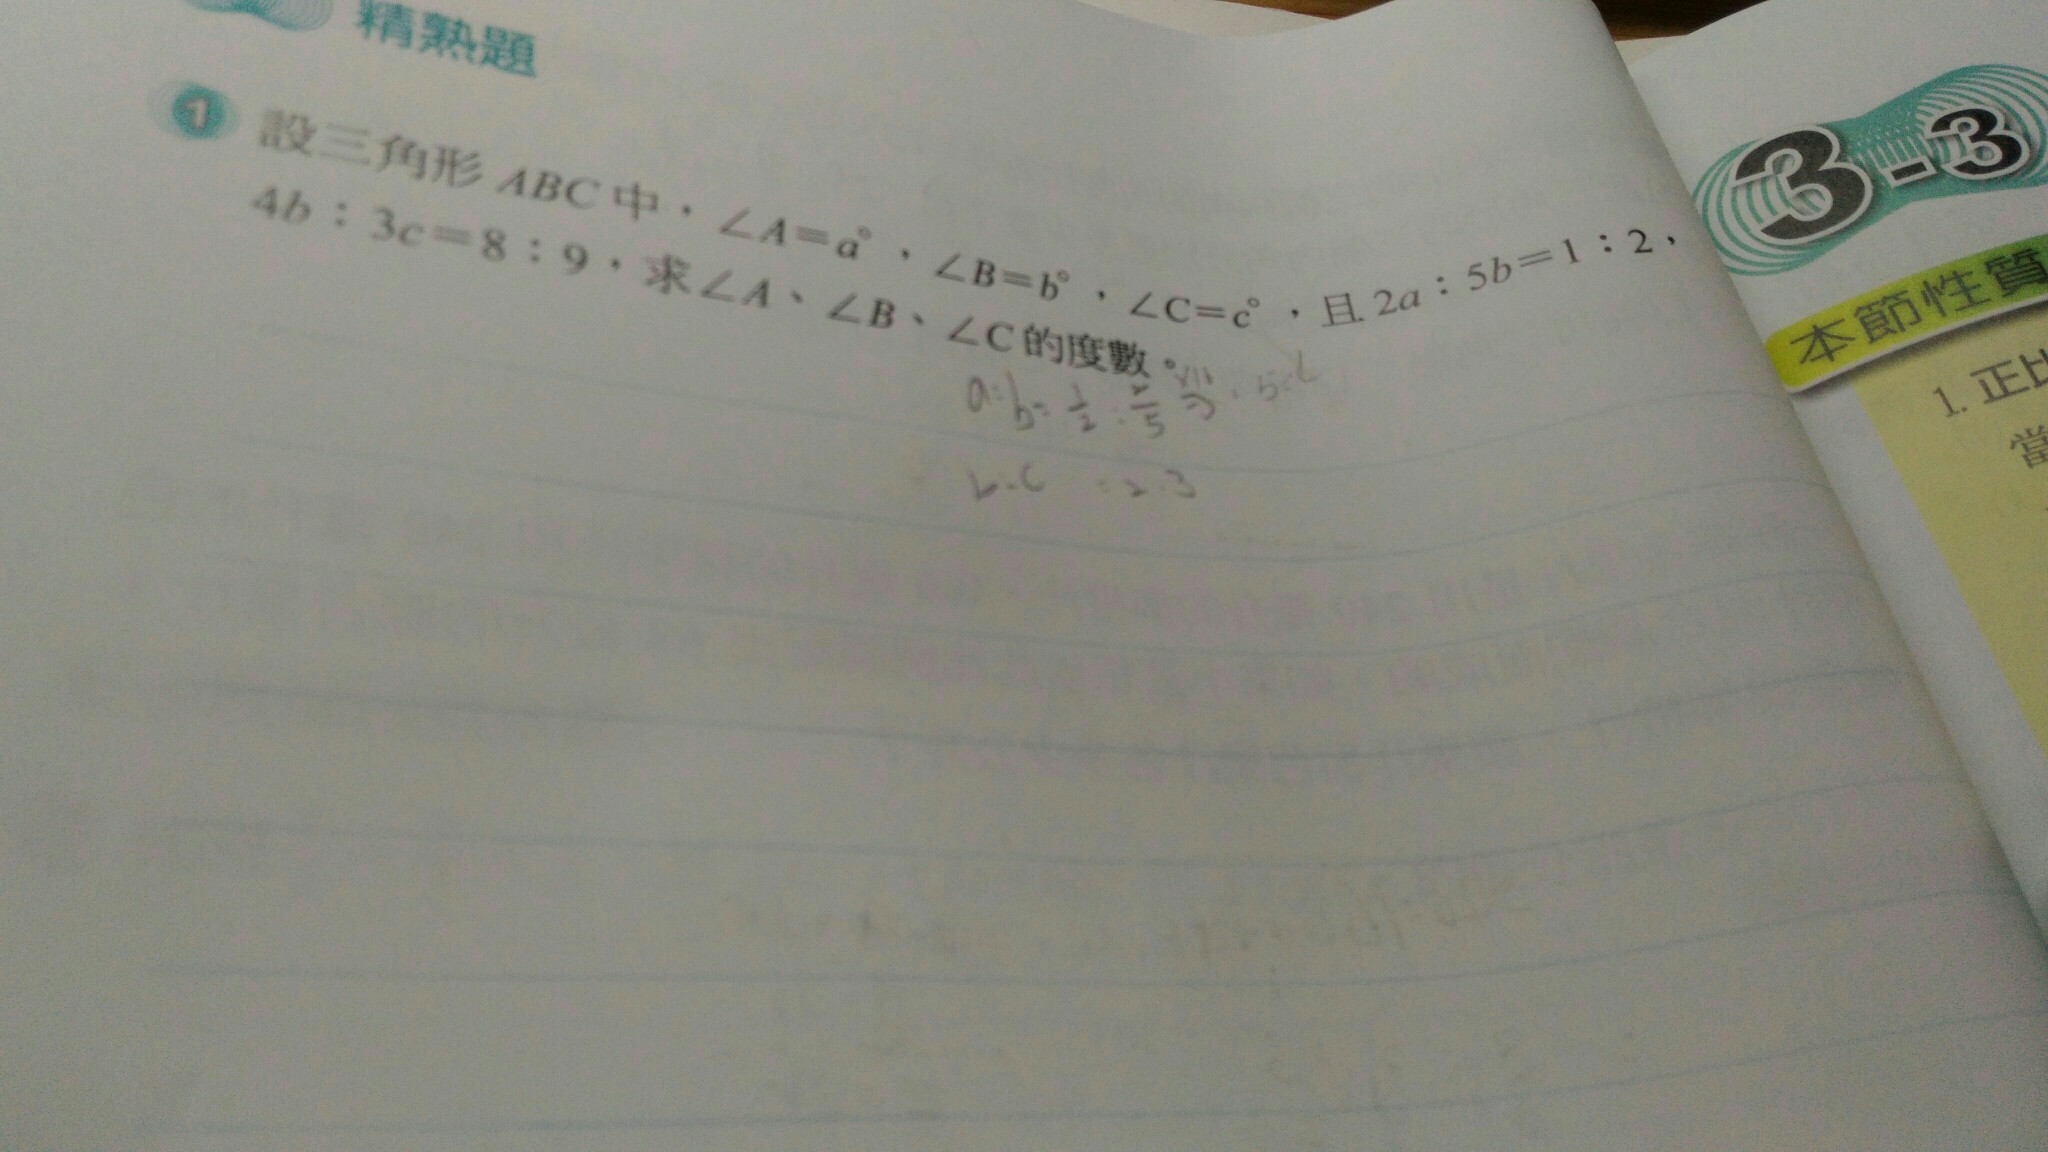 精熟題
1 設三角形 ABC 中，∠A=a°，∠B=b°，∠C=c°，且 2a：5b=1：2，
4b：3c=8：9，求∠A、∠B、∠C 的度數。
a:b= 1/2 : 2/5
b:c :2:3
3-3
本節性質
1. 正比
當